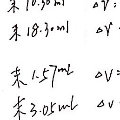 末 10.30ml ΔV:
末 18.30ml ΔV
末 1.57ml ΔV:
末 3.05ml ΔV